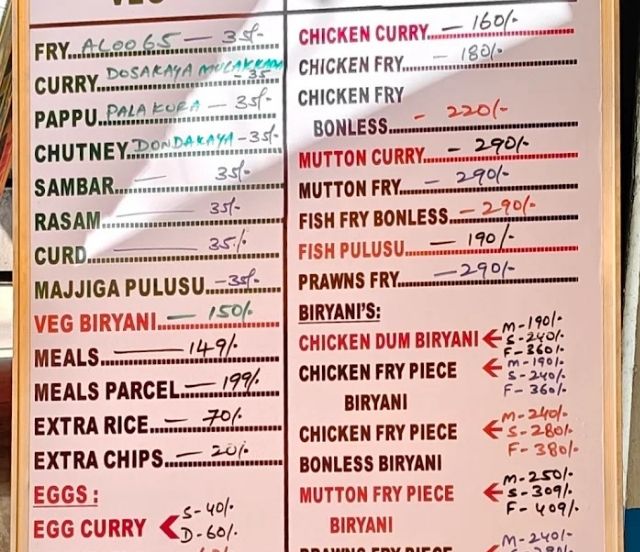 VEG
FRY ALOO 65 — 35/-
CURRY DOSAKAYA MULAKKAM
-35
PAPPU PALAKURA — 35/-
CHUTNEY DONDAKAYA -35/-
SAMBAR — 35/-
RASAM — 35/-
CURD — 35/-
MAJJIGA PULUSU -35/-
VEG BIRYANI — 150/-
MEALS — 149/-
MEALS PARCEL — 199/-
EXTRA RICE — 70/-
EXTRA CHIPS — 20/-
EGGS :
EGG CURRY S-40/-
D-60/-
CHICKEN CURRY — 160/-
CHICKEN FRY - 180/-
CHICKEN FRY
BONLESS - 220/-
MUTTON CURRY - 290/-
MUTTON FRY - 290/-
FISH FRY BONLESS - 290/-
FISH PULUSU — 190/-
PRAWNS FRY - 290/-
BIRYANI'S:
CHICKEN DUM BIRYANI M-190/-
S-240/-
F-360/-
CHICKEN FRY PIECE M-190/-
S-240/-
BIRYANI F-360/-
CHICKEN FRY PIECE M-240/-
S-280/-
BONLESS BIRYANI F-380/-
MUTTON FRY PIECE M-250/-
S-309/-
BIRYANI F-409/-
PRAWNS FRY PIECE M-240/-